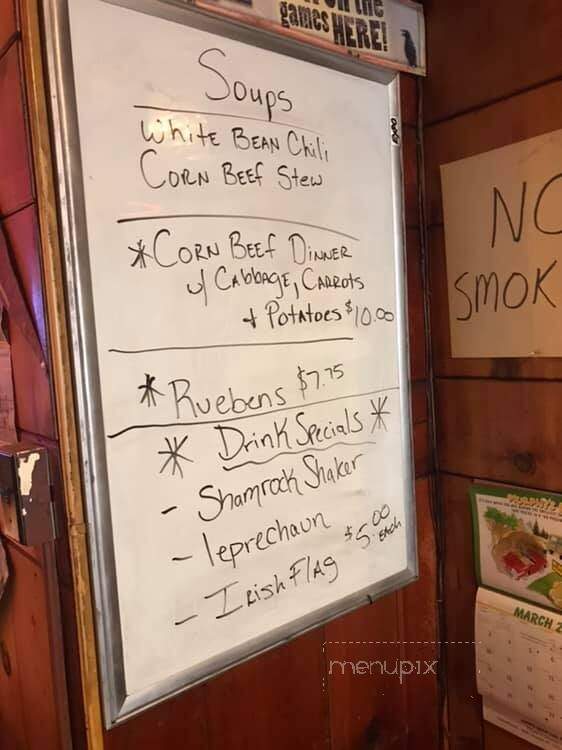 games HERE!
Soups
White BEAN Chili
CORN BEEF Stew
*CORN BEEF DINNER
w/ CABBAGE, CARROTS
+ POTATOES $10.00
* Ruebens $7.75
* Drink Specials *
- Shamrock Shaker
- leprechaun
- IRISH FlAG $5.00 EACH
NO
SMOK
MARCH 2
menupix